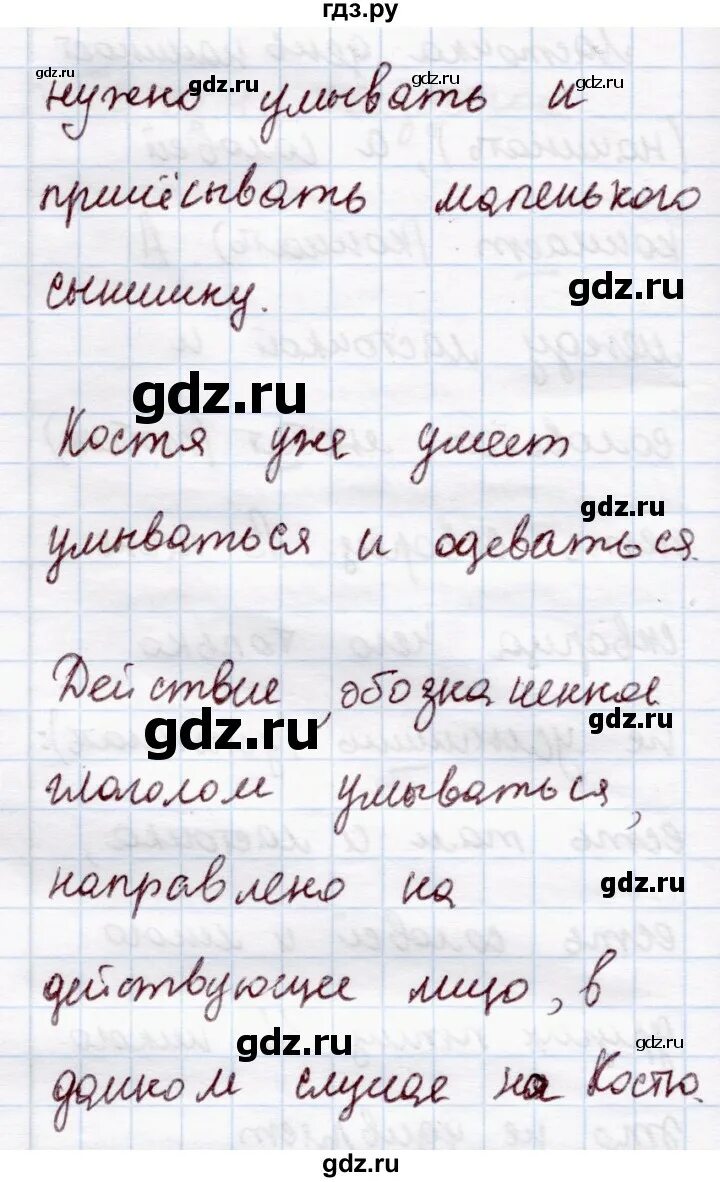 гдз.ру
gdz.ru gdz.ru gdz.ru gdz.ru
нужно умывать и
причёсывать маленького
сынишку. gdz.ru
gdz.ru
Костя уже умеет
gdz.ru
умываться и одеваться.
Действие, обозначенное
gdz.ru gdz.ru
глаголом умываться,
направлено на gdz.ru
действующее лицо, в
gdz.ru gdz.ru
данном случае на Костю.
gdz.ru